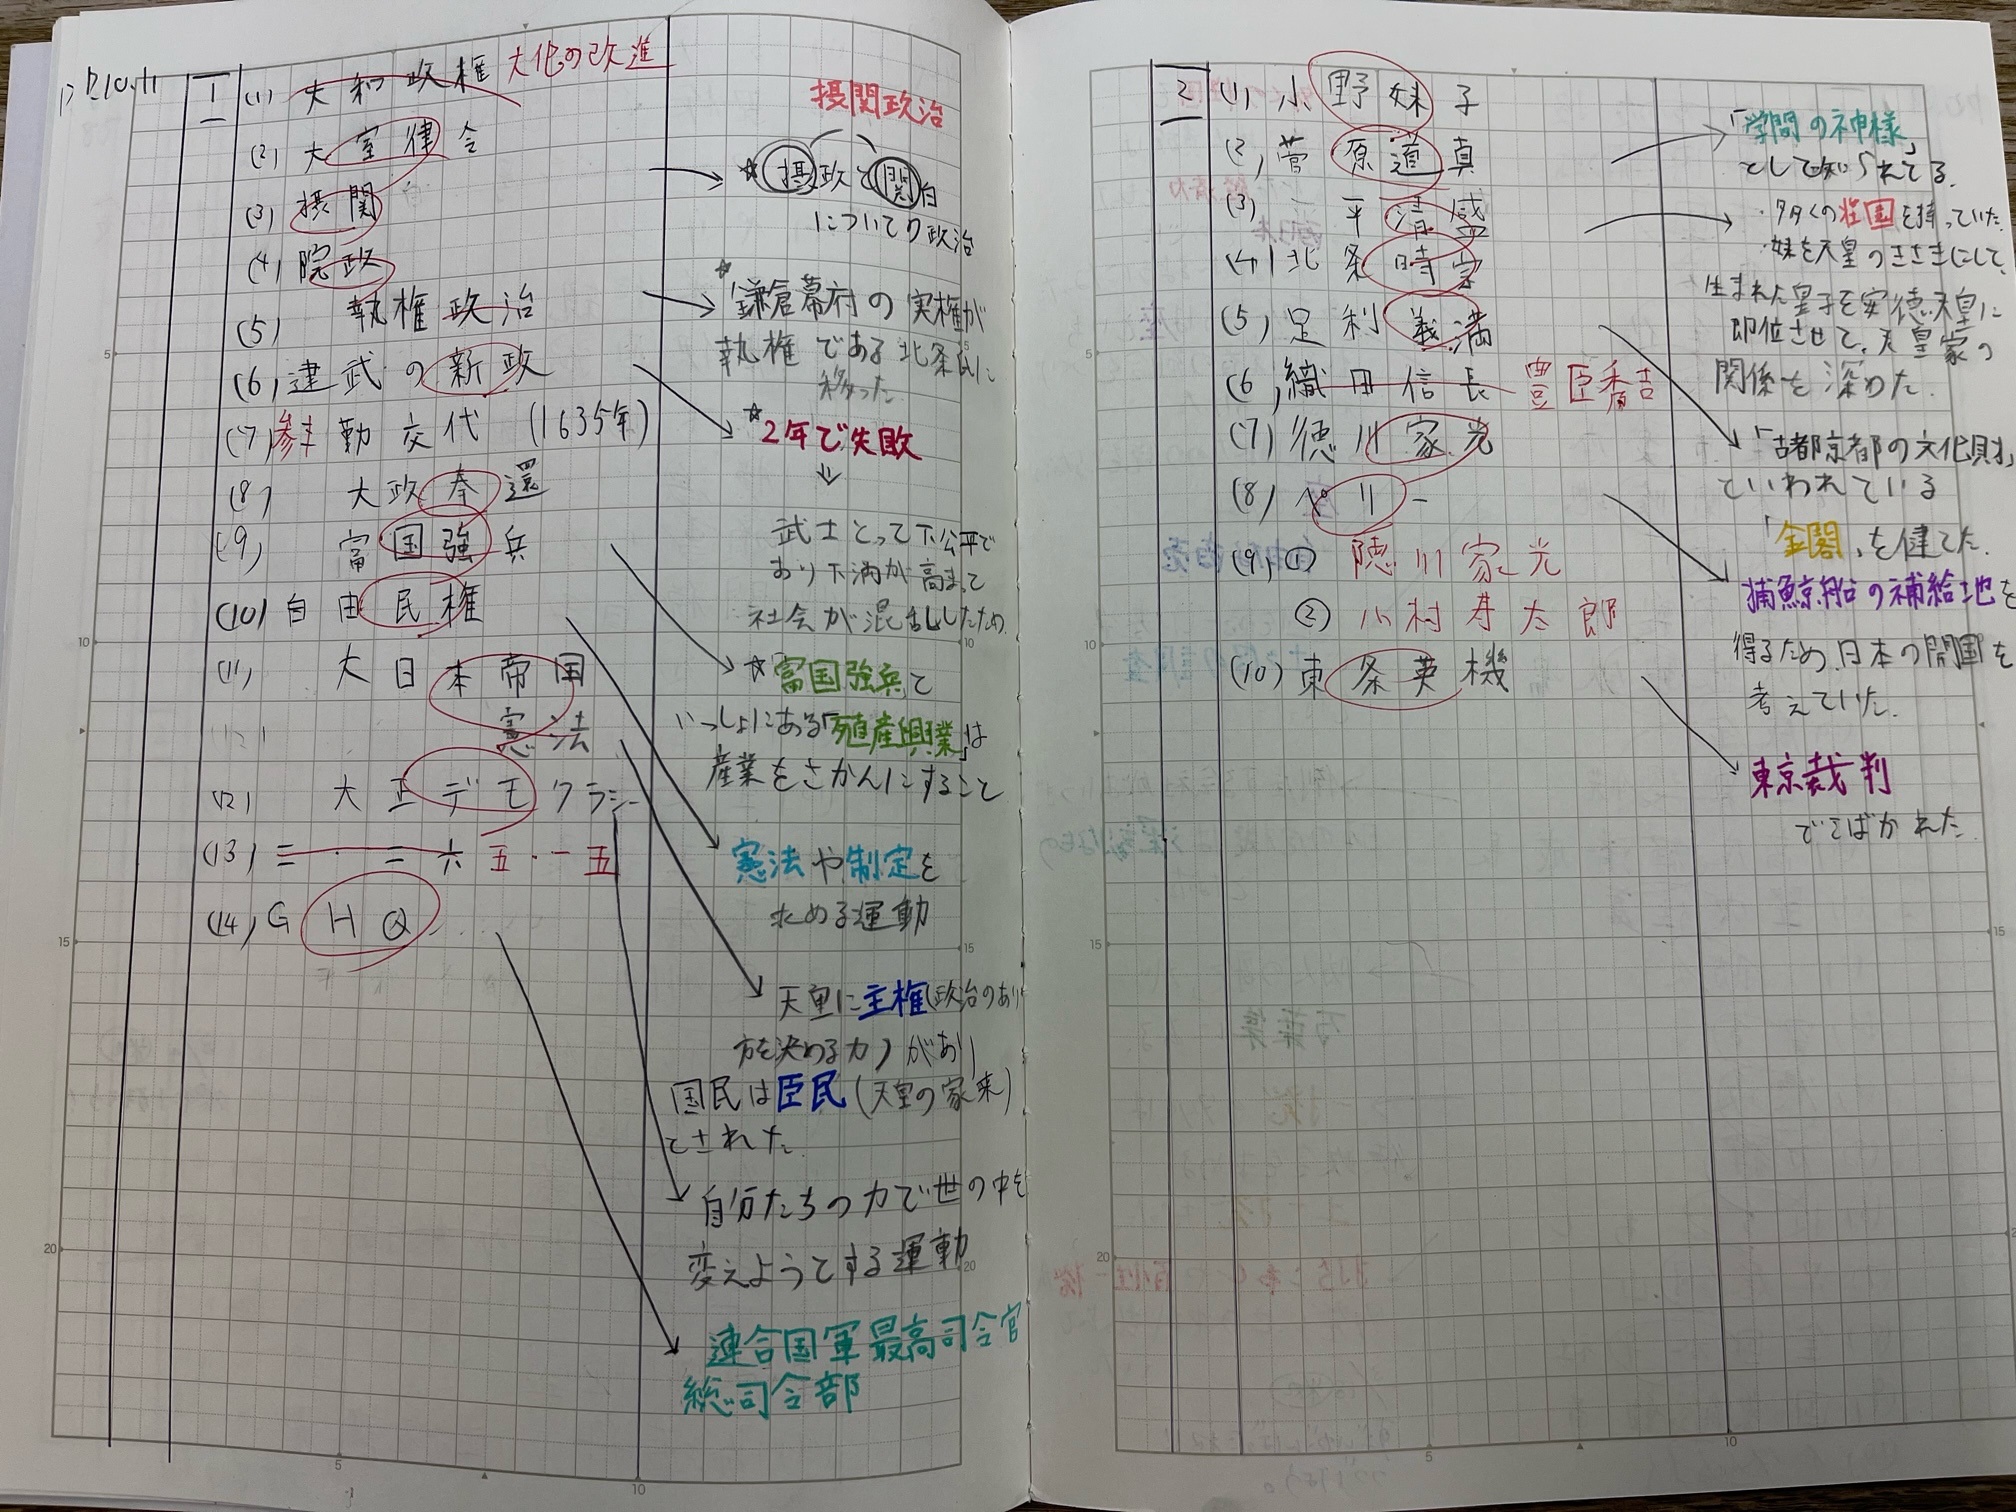 P.10.11
1
(1) 大和政権 大化の改進
(2) 大宝律令
(3) 摂関
(4) 院政
(5) 執権政治
(6) 建武の新政
(7) 参勤交代 (1635年)
(8) 大政奉還
(9) 富国強兵
(10) 自由民権
(11) 大日本帝国
憲法
(12) 大正デモクラシー
(13) 三・二六 五・一五
(14) GHQ
摂関政治
☆摂政と関白
についての政治
☆鎌倉幕府の実権が
執権である北条氏に
移った
☆2年で失敗
⇓
武士とって不公平で
あり不満が高まって
社会が混乱したため
☆「富国強兵と
いっしょにある「殖産興業」は
産業をさかんにすること
憲法や制定を
求める運動
天皇に主権(政治のあり
方を決める力)があり
国民は臣民(天皇の家来)
とされた.
自分たちの力で世の中を
変えようとする運動
連合国軍最高司令官
総司令部
2
(1) 小野妹子
(2) 菅原道真
(3) 平清盛
(4) 北条時宗
(5) 足利義満
(6) 織田信長 豊臣秀吉
(7) 徳川家光
(8) ペリー
(9) ① 徳川家光
② 小村寿太郎
(10) 東条英機
「学問の神様」
として知られてる.
・多くの荘園を持っていた.
・妹を天皇のきさきにして、
生まれた皇子を安徳天皇に
即位させて、天皇家の
関係を深めた.
「古都京都の文化財」
といわれている
「金閣」を健てた.
捕鯨船の補給地を
得るため、日本の開国を
考えていた.
東京裁判
でさばかれた